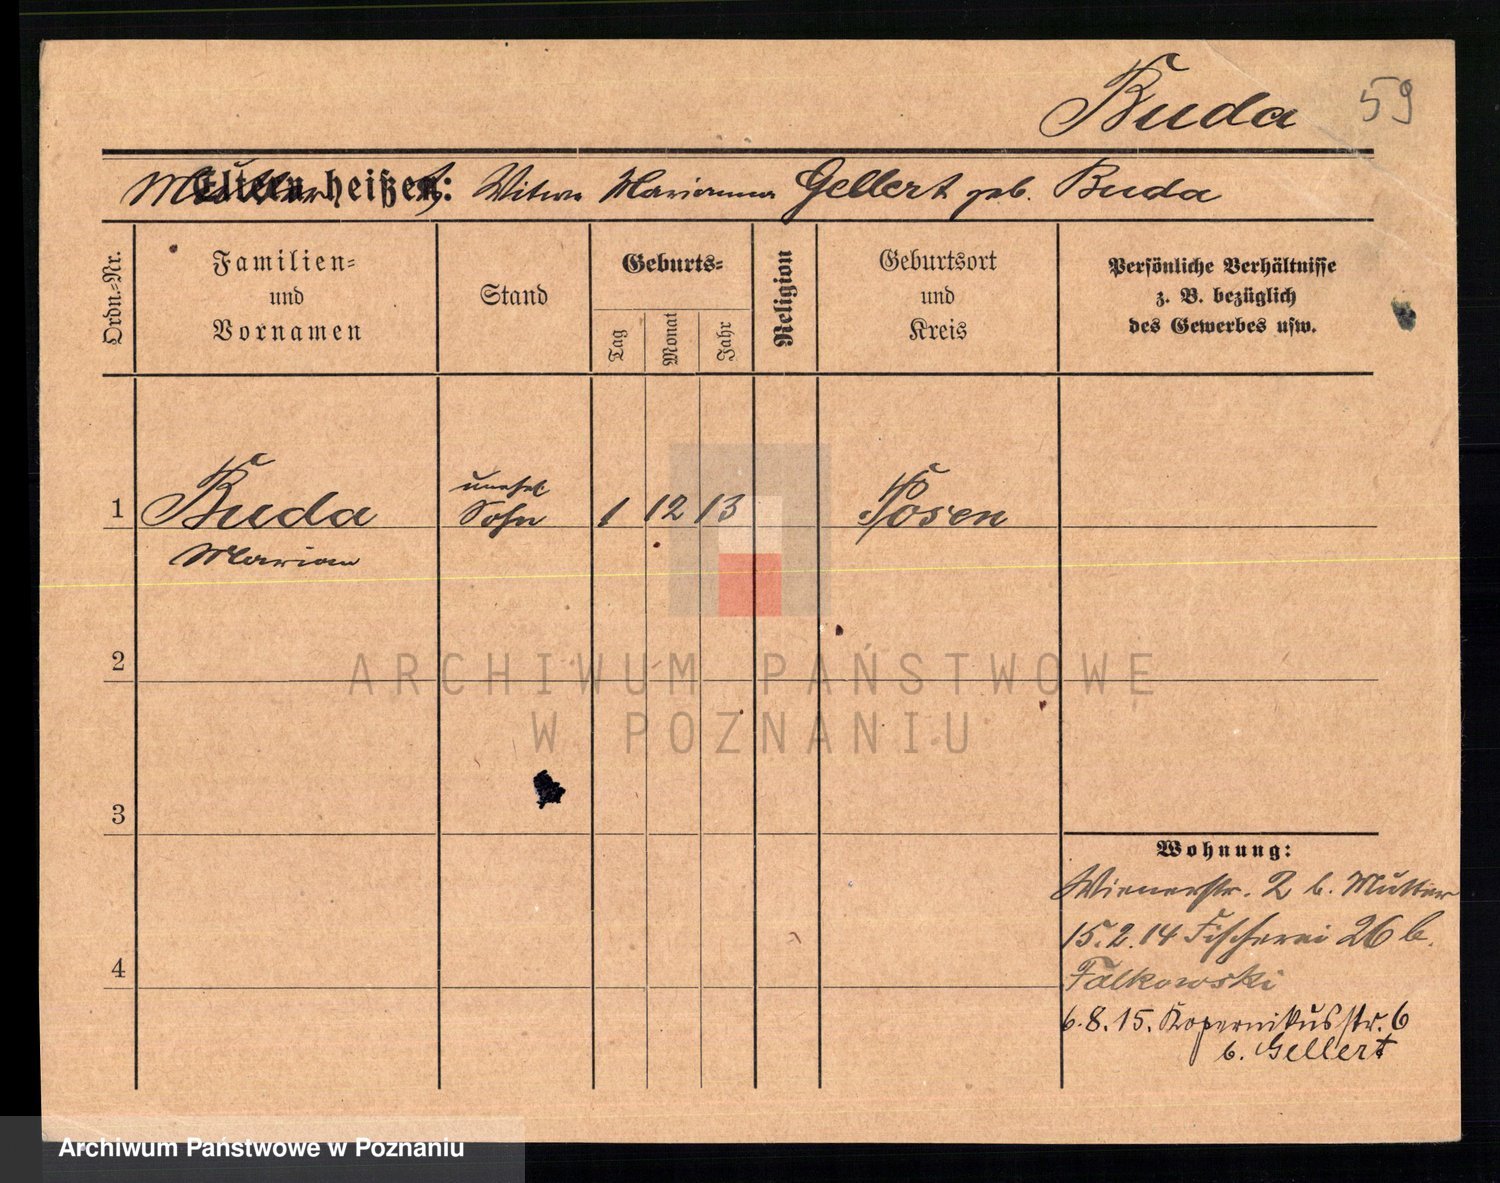 Buda 59
Mutter Eltern heißen: Witwe Marianna Gellert geb. Buda
Ordn.-Nr.
Familien-
und
Vornamen
Stand
Geburts-
Tag
Monat
Jahr
Religion
Geburtsort
und
Kreis
Persönliche Verhältnisse
z. B. bezüglich
des Gewerbes usw.
1 Buda unehel Sohn 1 12 13 Posen
Marian
2
3
4
Wohnung:
Wienerstr. 2 b. Mutter
15.2.14 Fischerei 26 b.
Falkowski
6.8.15. Kopernikusstr. 6
b. Gellert
ARCHIWUM PAŃSTWOWE
W POZNANIU
Archiwum Państwowe w Poznaniu